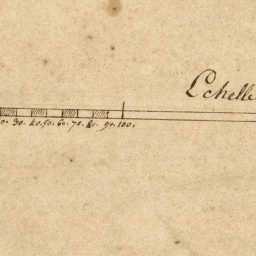 Echelle
0. 30. 40. 50. 60. 70. 80. 90. 100.